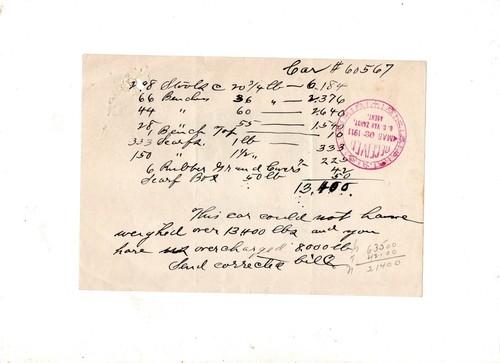 Car # 60567
298 Stools c 20 3/4 lb — 6,184
66 Benches 36 " — 2376
44 " 60 — 2640
28 " 55 — 1540
Bench Top 10
333 Scarfs 1 lb — 333
150 " 1 1/2 " 225
6 Rubber Covers 42
Scarf Box 50 lb 50
13,400
This car could not have
weighed over 13400 lbs and you
have overcharged 8000 lb
Send corrected bill
63500
42100
21400
RECEIVED
MAR 1911
AGENT.